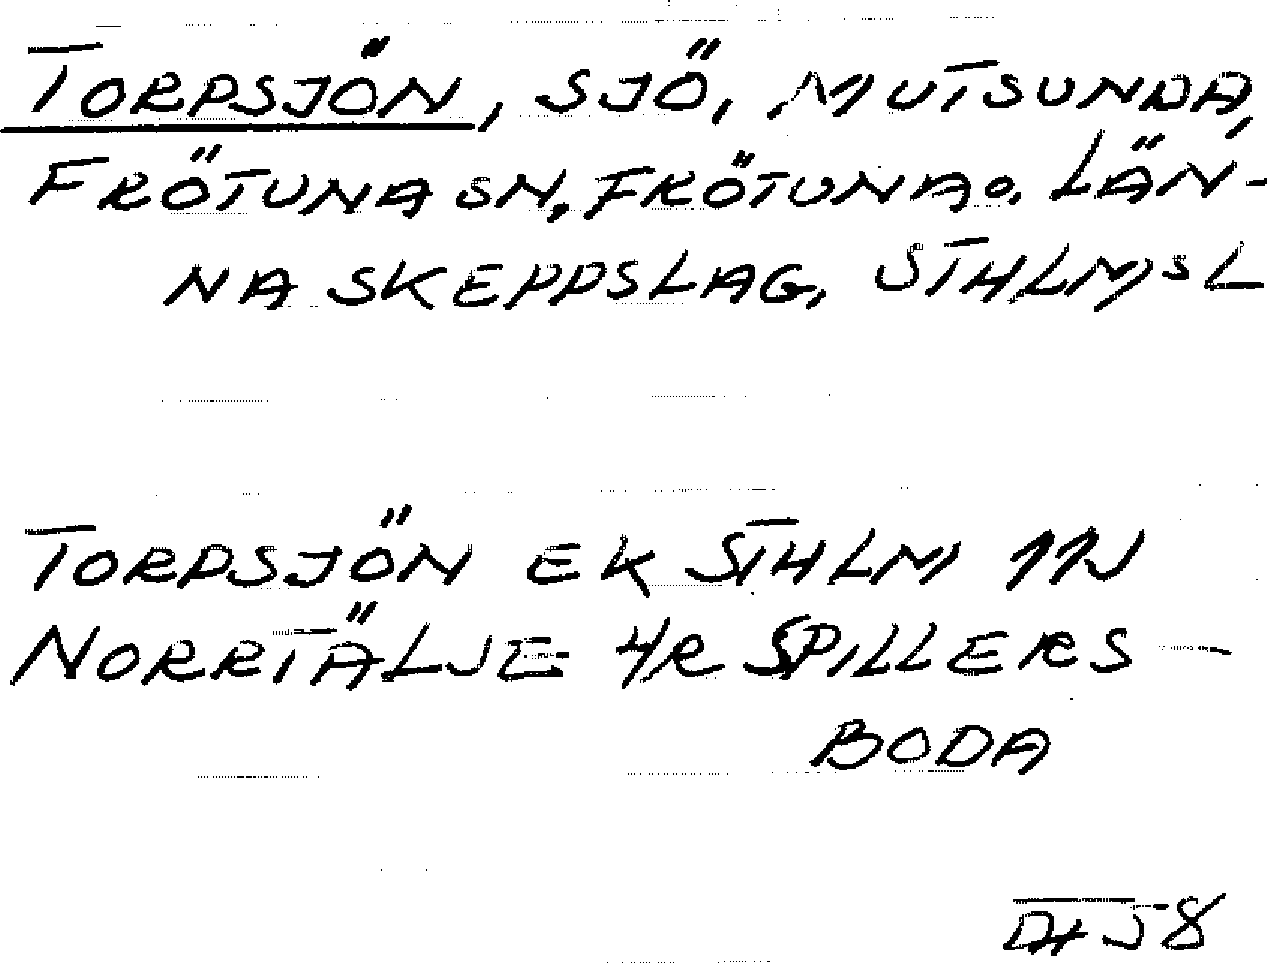 TORPSJÖN, SJÖ, MUTSUNDA,
FRÖTUNA SN, FRÖTUNA O. LÄN-
NA SKEPPSLAG, STHLMS L
TORPSJÖN EK STHLM 11N
NORRTÄLJE 4R SPILLERS-
BODA